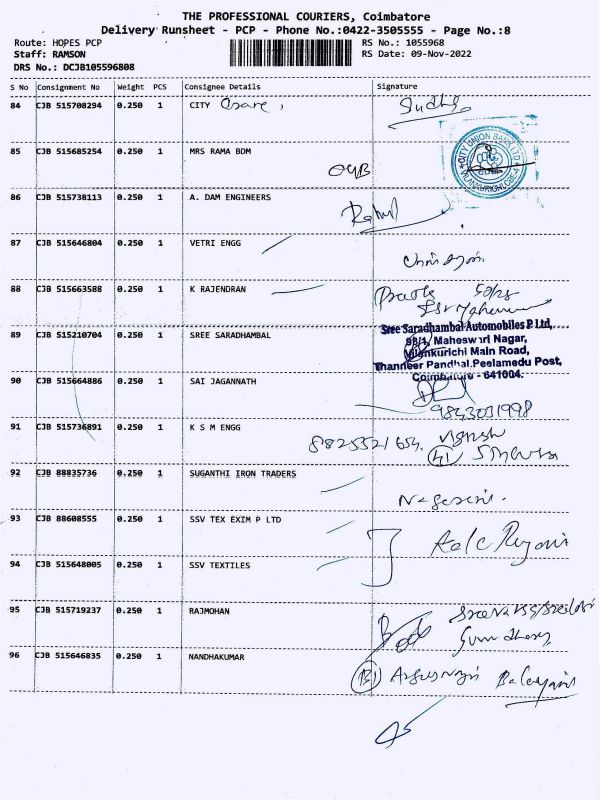 THE PROFESSIONAL COURIERS, Coimbatore
Delivery Runsheet - PCP - Phone No.:0422-3505555 - Page No.:8
Route: HOPES PCP RS No.: 1055968
Staff: RAMSON RS Date: 09-Nov-2022
DRS No.: DCJB105596808
S No Consignment No Weight PCS Consignee Details Signature
84 CJB 515708294 0.250 1 CITY
85 CJB 515685254 0.250 1 MRS RAMA BDM
CITY UNION BANK LTD
86 CJB 515738113 0.250 1 A. DAM ENGINEERS
Rahul
87 CJB 515646804 0.250 1 VETRI ENGG
88 CJB 515663588 0.250 1 K RAJENDRAN
89 CJB 515210704 0.250 1 SREE SARADHAMBAL
Sree Saradhambal Automobiles P Ltd,
98/1, Maheswari Nagar,
Vilankurichi Main Road,
Thanneer Pandhal.Peelamedu Post,
Coimbatore - 641004.
90 CJB 515664886 0.250 1 SAI JAGANNATH
9843031998
91 CJB 515736891 0.250 1 K S M ENGG
8825521654. Vignesh
92 CJB 88835736 0.250 1 SUGANTHI IRON TRADERS
93 CJB 88608555 0.250 1 SSV TEX EXIM P LTD
94 CJB 515648005 0.250 1 SSV TEXTILES
95 CJB 515719237 0.250 1 RAJMOHAN
96 CJB 515646835 0.250 1 NANDHAKUMAR